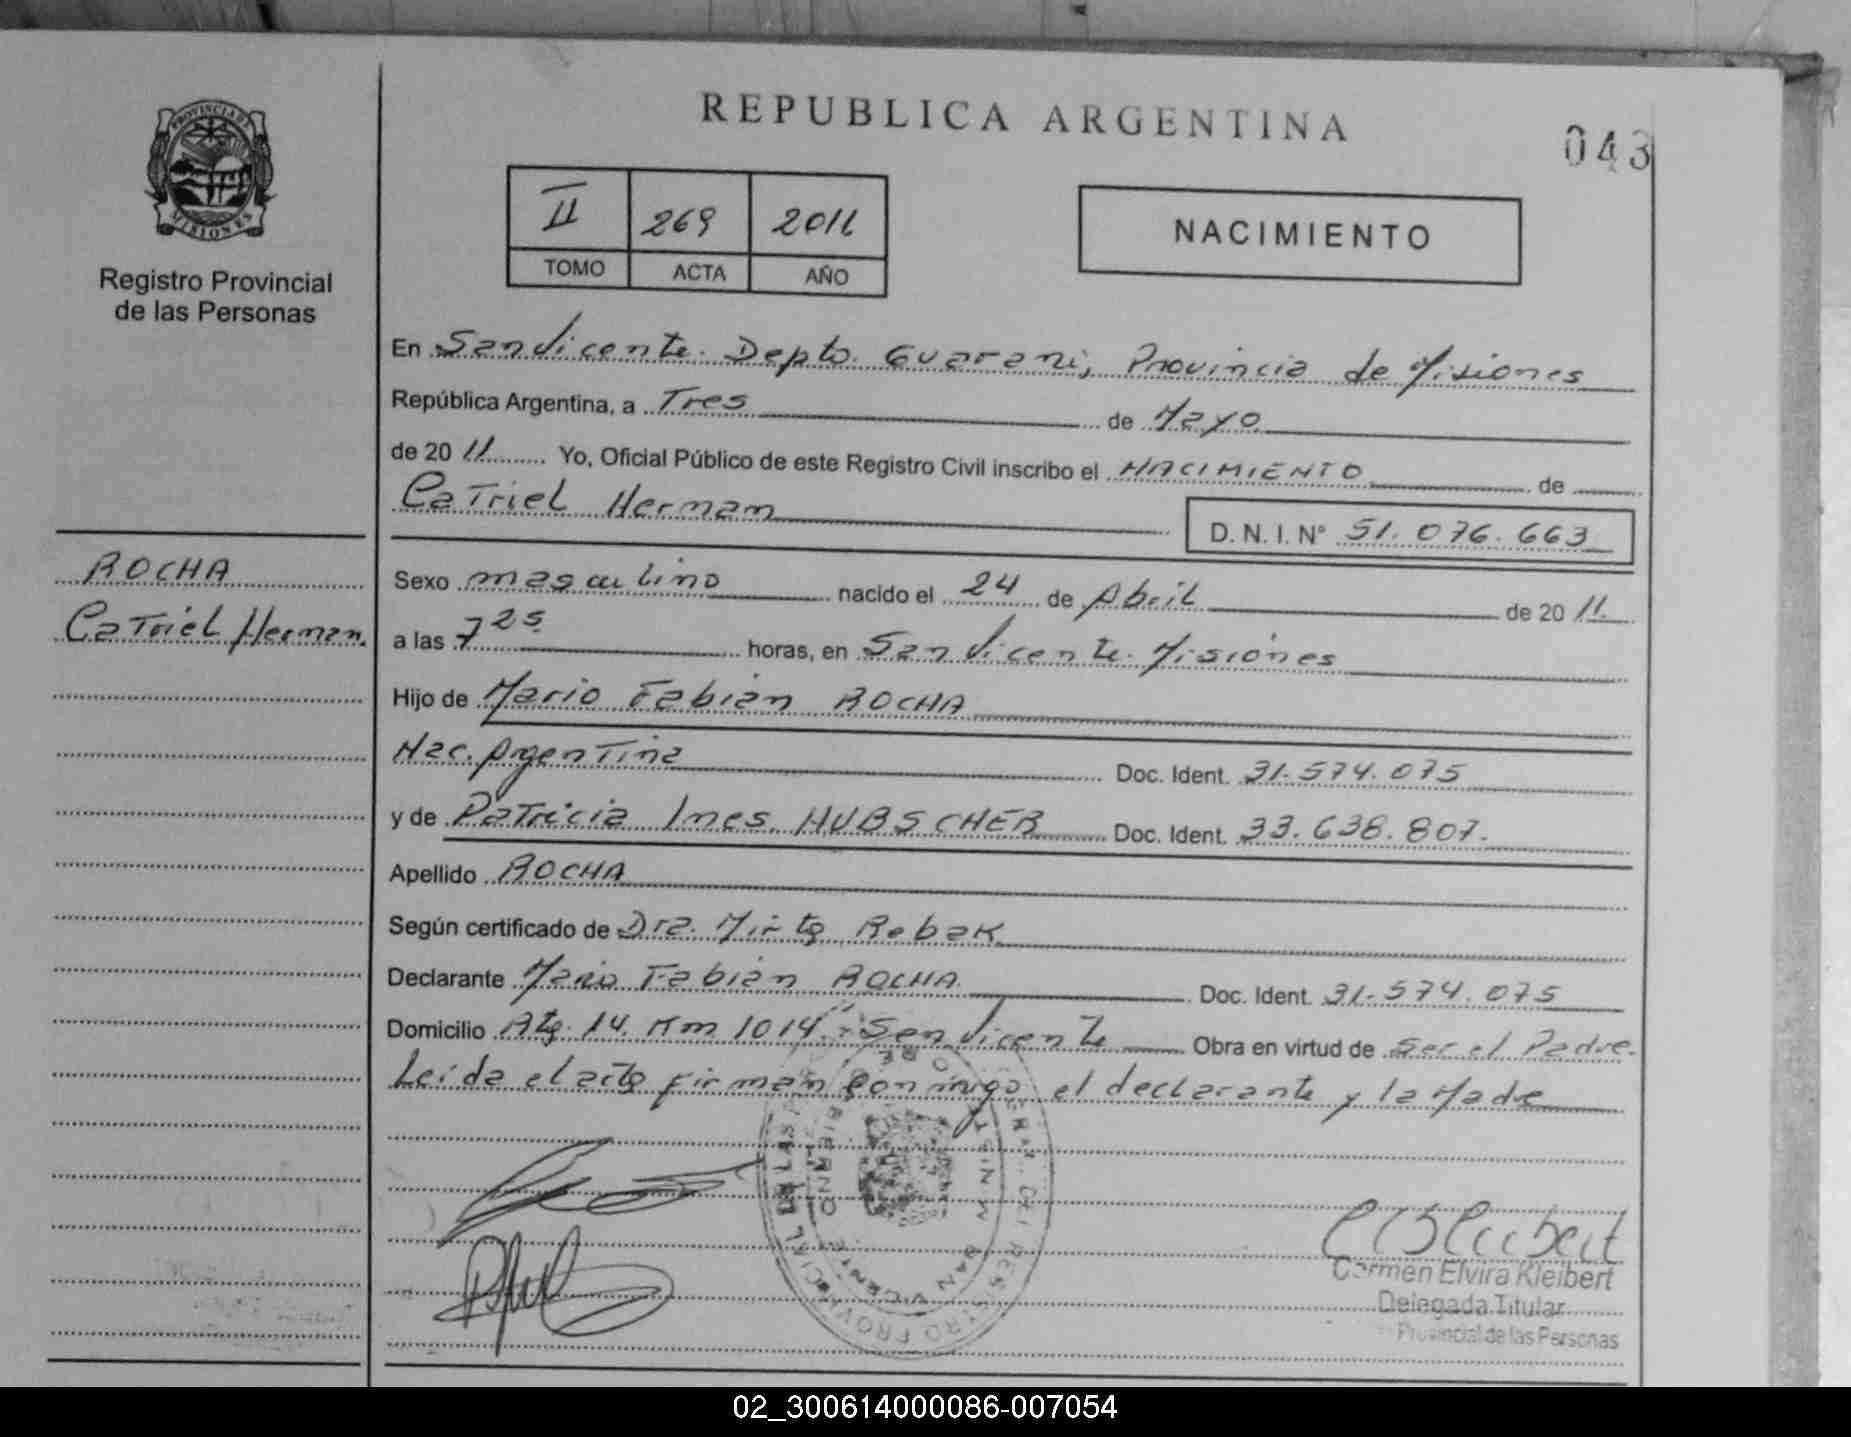 REPUBLICA ARGENTINA
043
PROVINCIA DE
MISIONES
Registro Provincial
de las Personas
II 269 2011
TOMO ACTA AÑO
NACIMIENTO
En San Vicente. Depto. Guarani, Provincia de Misiones
República Argentina, a Tres de Mayo
de 20 11 Yo, Oficial Público de este Registro Civil inscribo el NACIMIENTO de
Catriel Hernan
D. N. I. Nº 51.076.663
ROCHA
Catriel Hernan.
Sexo masculino nacido el 24 de Abril de 20 11.
a las 7 25 horas, en San Vicente. Misiones
Hijo de Mario Fabián ROCHA
Nac. Argentina Doc. Ident. 31.574.075
y de Patricia Ines HUBSCHER Doc. Ident. 33.638.807.
Apellido ROCHA
Según certificado de Dra. Mirta Rebak
Declarante Mario Fabián ROCHA Doc. Ident. 31.574.075
Domicilio Rta. 14. Km 1014. San Vicente Obra en virtud de Ser el Padre.
Leída el acta firman conmigo el declarante y la Madre
Carmen Elvira Kleibert
Delegada Titular
Provincial de las Personas
02_300614000086-007054